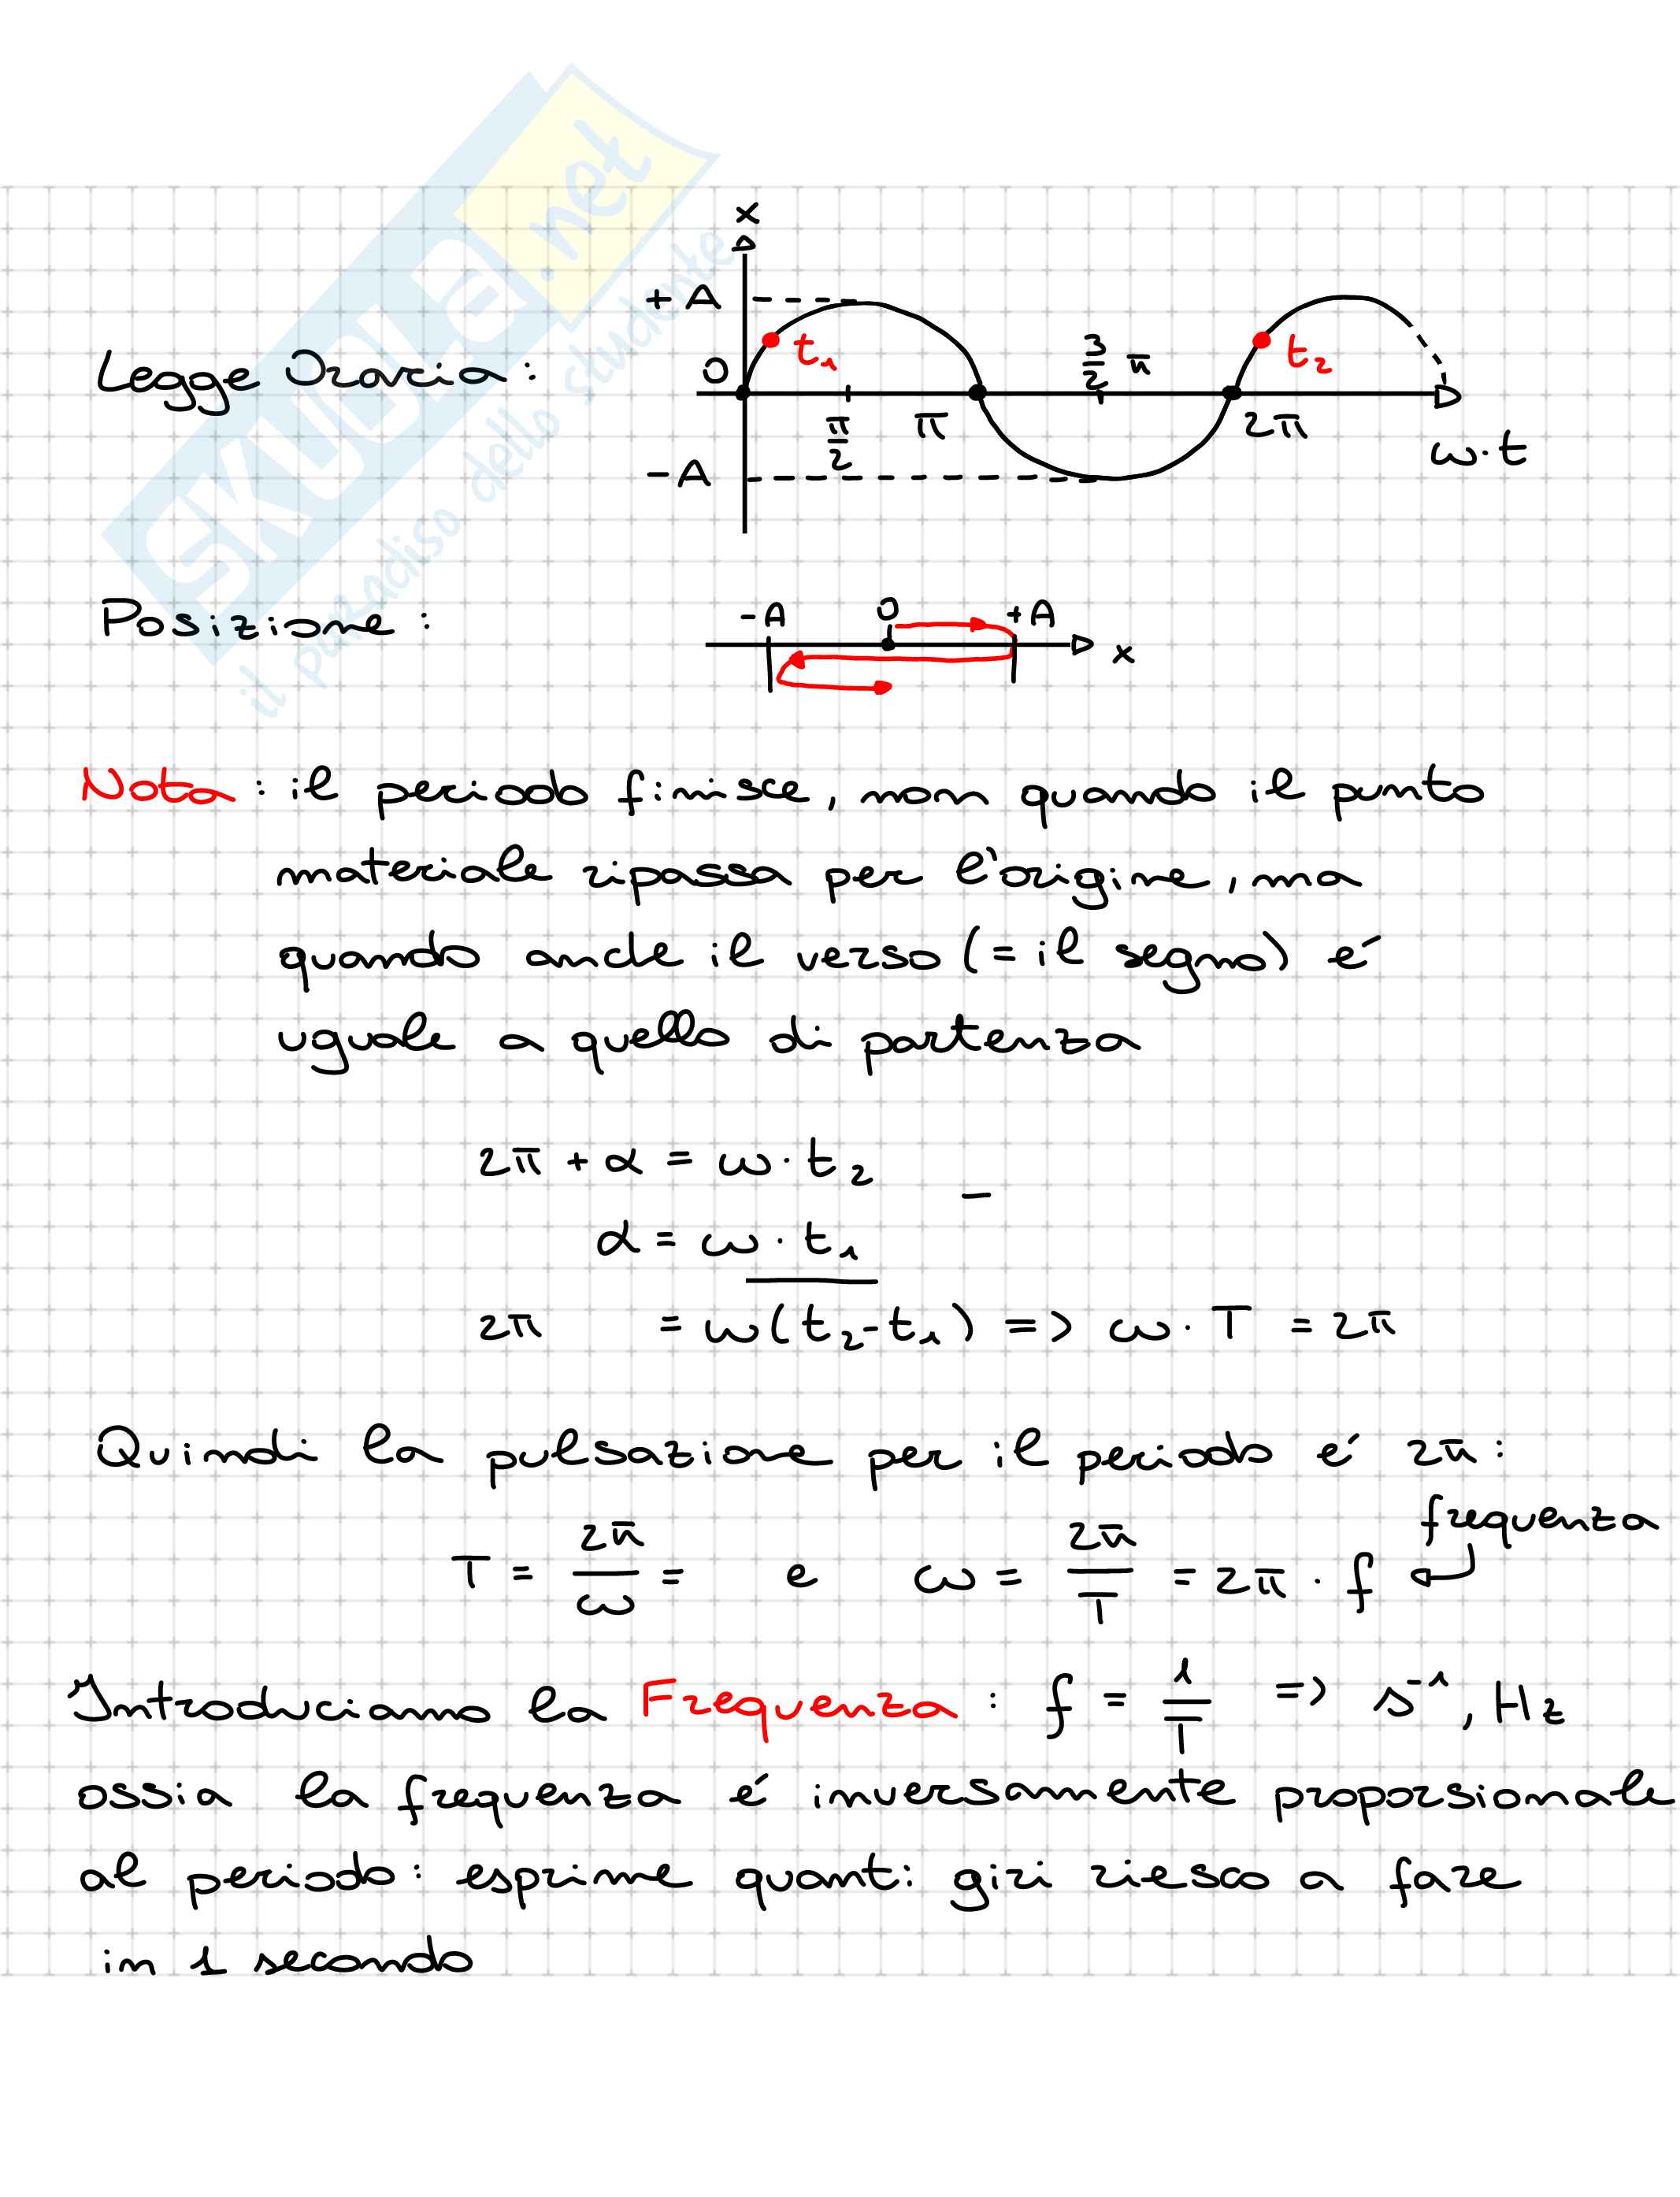 SKUOLA.net
il paradiso dello studente
Legge Oraria:
x
+A
0
-A
t₁
π/2
π
3/2 π
2π
t₂
ω·t
Posizione:
-A 0 +A
x
Nota: il periodo finisce, non quando il punto
materiale ripassa per l'origine, ma
quando anche il verso (= il segno) é
uguale a quello di partenza
2π + α = ω·t₂
−
α = ω·t₁
2π = ω(t₂-t₁) => ω·T = 2π
Quindi la pulsazione per il periodo é 2π:
frequenza
T = 2π/ω = e ω = 2π/T = 2π·f
Introduciamo la Frequenza: f = 1/T => s⁻¹, Hz
ossia la frequenza é inversamente proporsionale
al periodo: esprime quanti giri riesco a fare
in 1 secondo